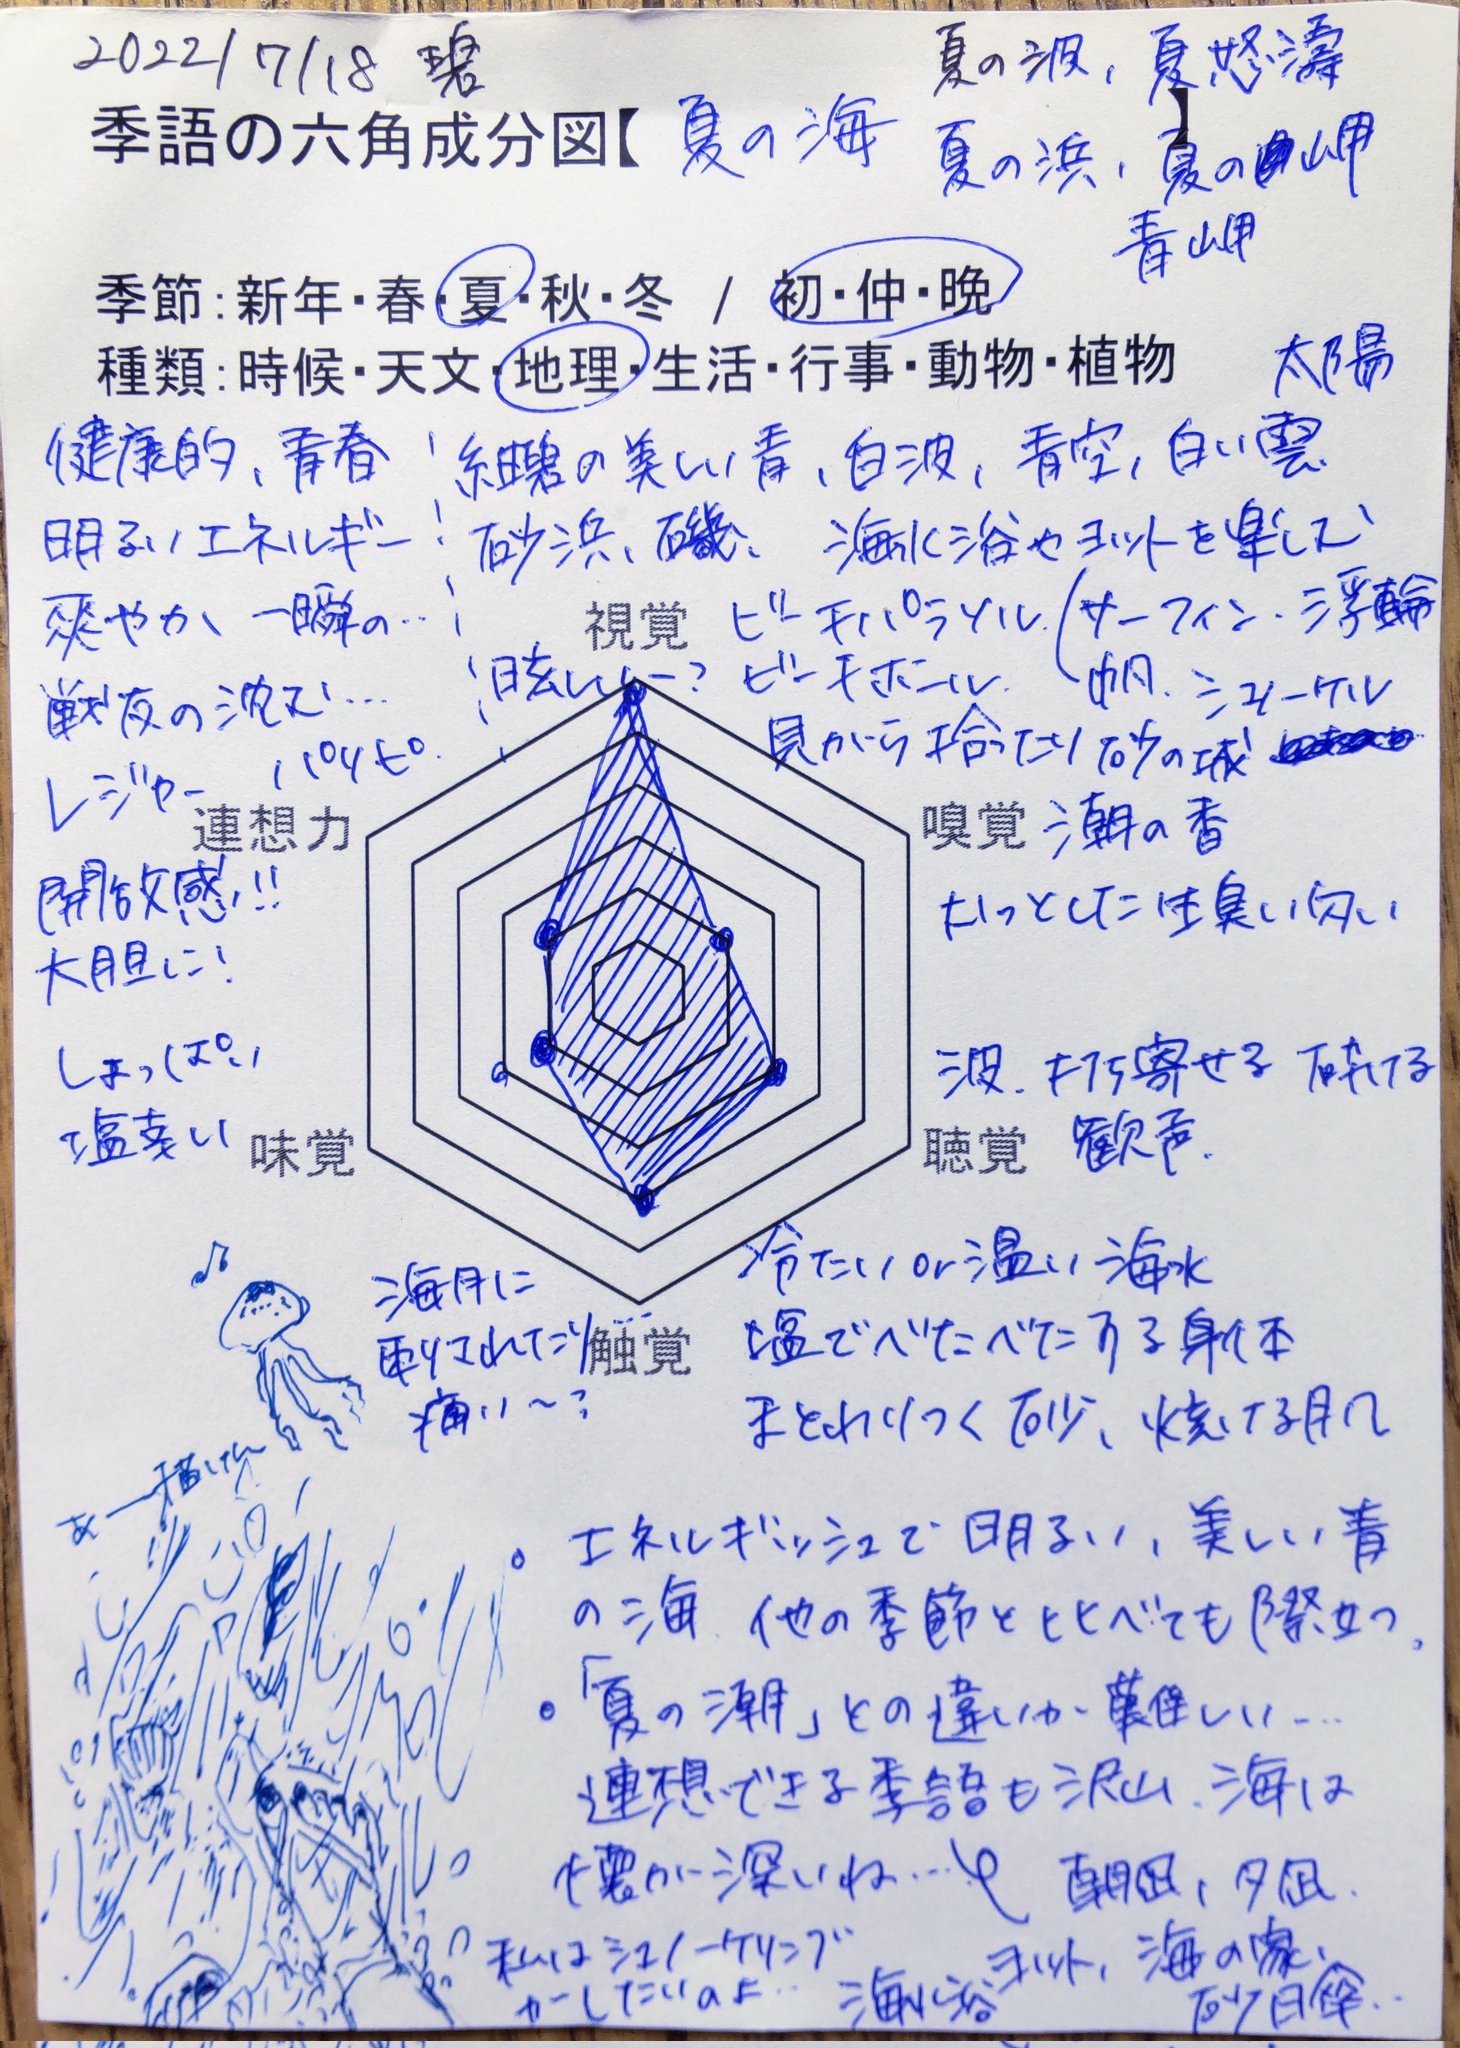 2022/7/18 碧
夏の波、夏怒濤
季語の六角成分図【 夏の海 】
夏の浜、夏の岬
青岬
季節：新年・春・夏・秋・冬 / 初・仲・晩
種類：時候・天文・地理・生活・行事・動物・植物
太陽
健康的、青春
明るいエネルギー
爽やか、一瞬の…
戦友の沈む…
レジャー パリピ
開放感!!
大胆に!
紺碧の美しい青、白波、青空、白い雲
砂浜、磯、 海水浴やヨットを楽しむ
視覚
ビーチパラソル (サーフィン・浮輪
眩しい〜?
ビーチボール 帆、シュノーケル
貝がら拾ったり 砂の城
連想力
嗅覚
潮の香
むっとした生臭い匂い
しょっぱい
塩辛い
味覚
波、打ち寄せる 砕ける
歓声
聴覚
海月に
刺されたり…
痛い〜?
触覚
冷たいor温い海水
塩でべたべたする身体
まとわりつく砂、焼ける肌
♪
あー描けん
・エネルギッシュで明るい、美しい青
の海 他の季節とくらべても際立つ。
・「夏の潮」との違いが難しい…
連想できる季語も沢山、海は
懐が深いね… 朝凪、夕凪
私はシュノーケリング
がしたいのよ…
海水浴
ヨット、海の家、
砂日傘…